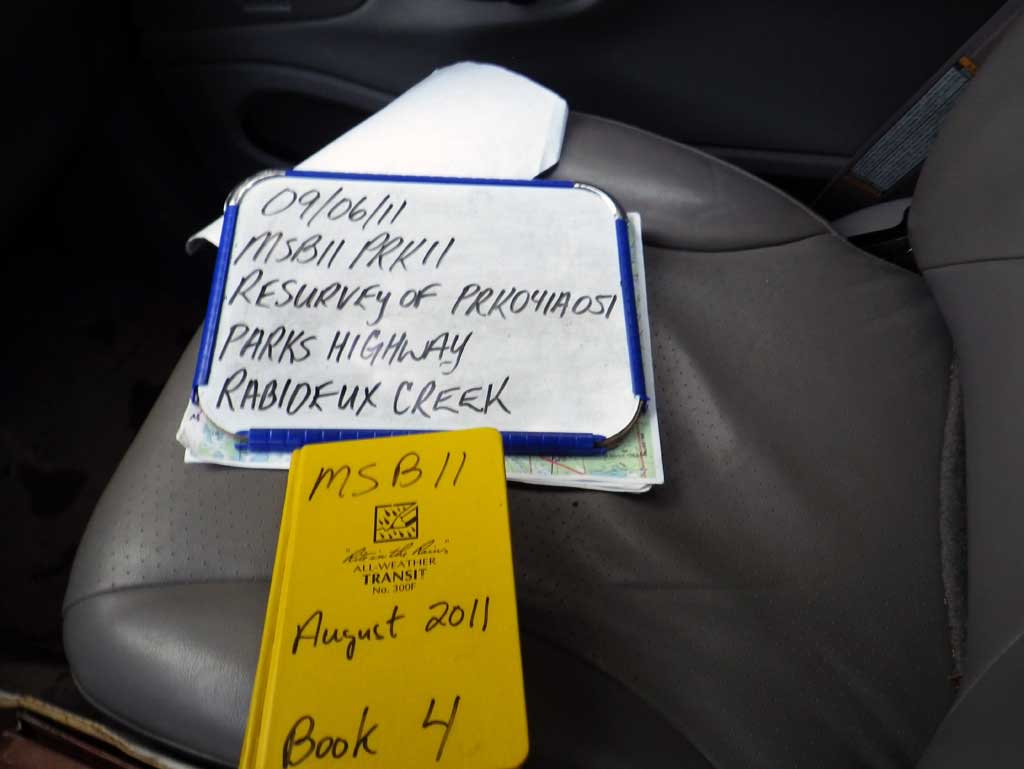 09/06/11
MSB11 PRK11
RESURVEY OF PRK041A051
PARKS HIGHWAY
RABIDEUX CREEK
MSB11
"Rite in the Rain"
ALL-WEATHER
TRANSIT
No. 300F
August 2011
Book 4